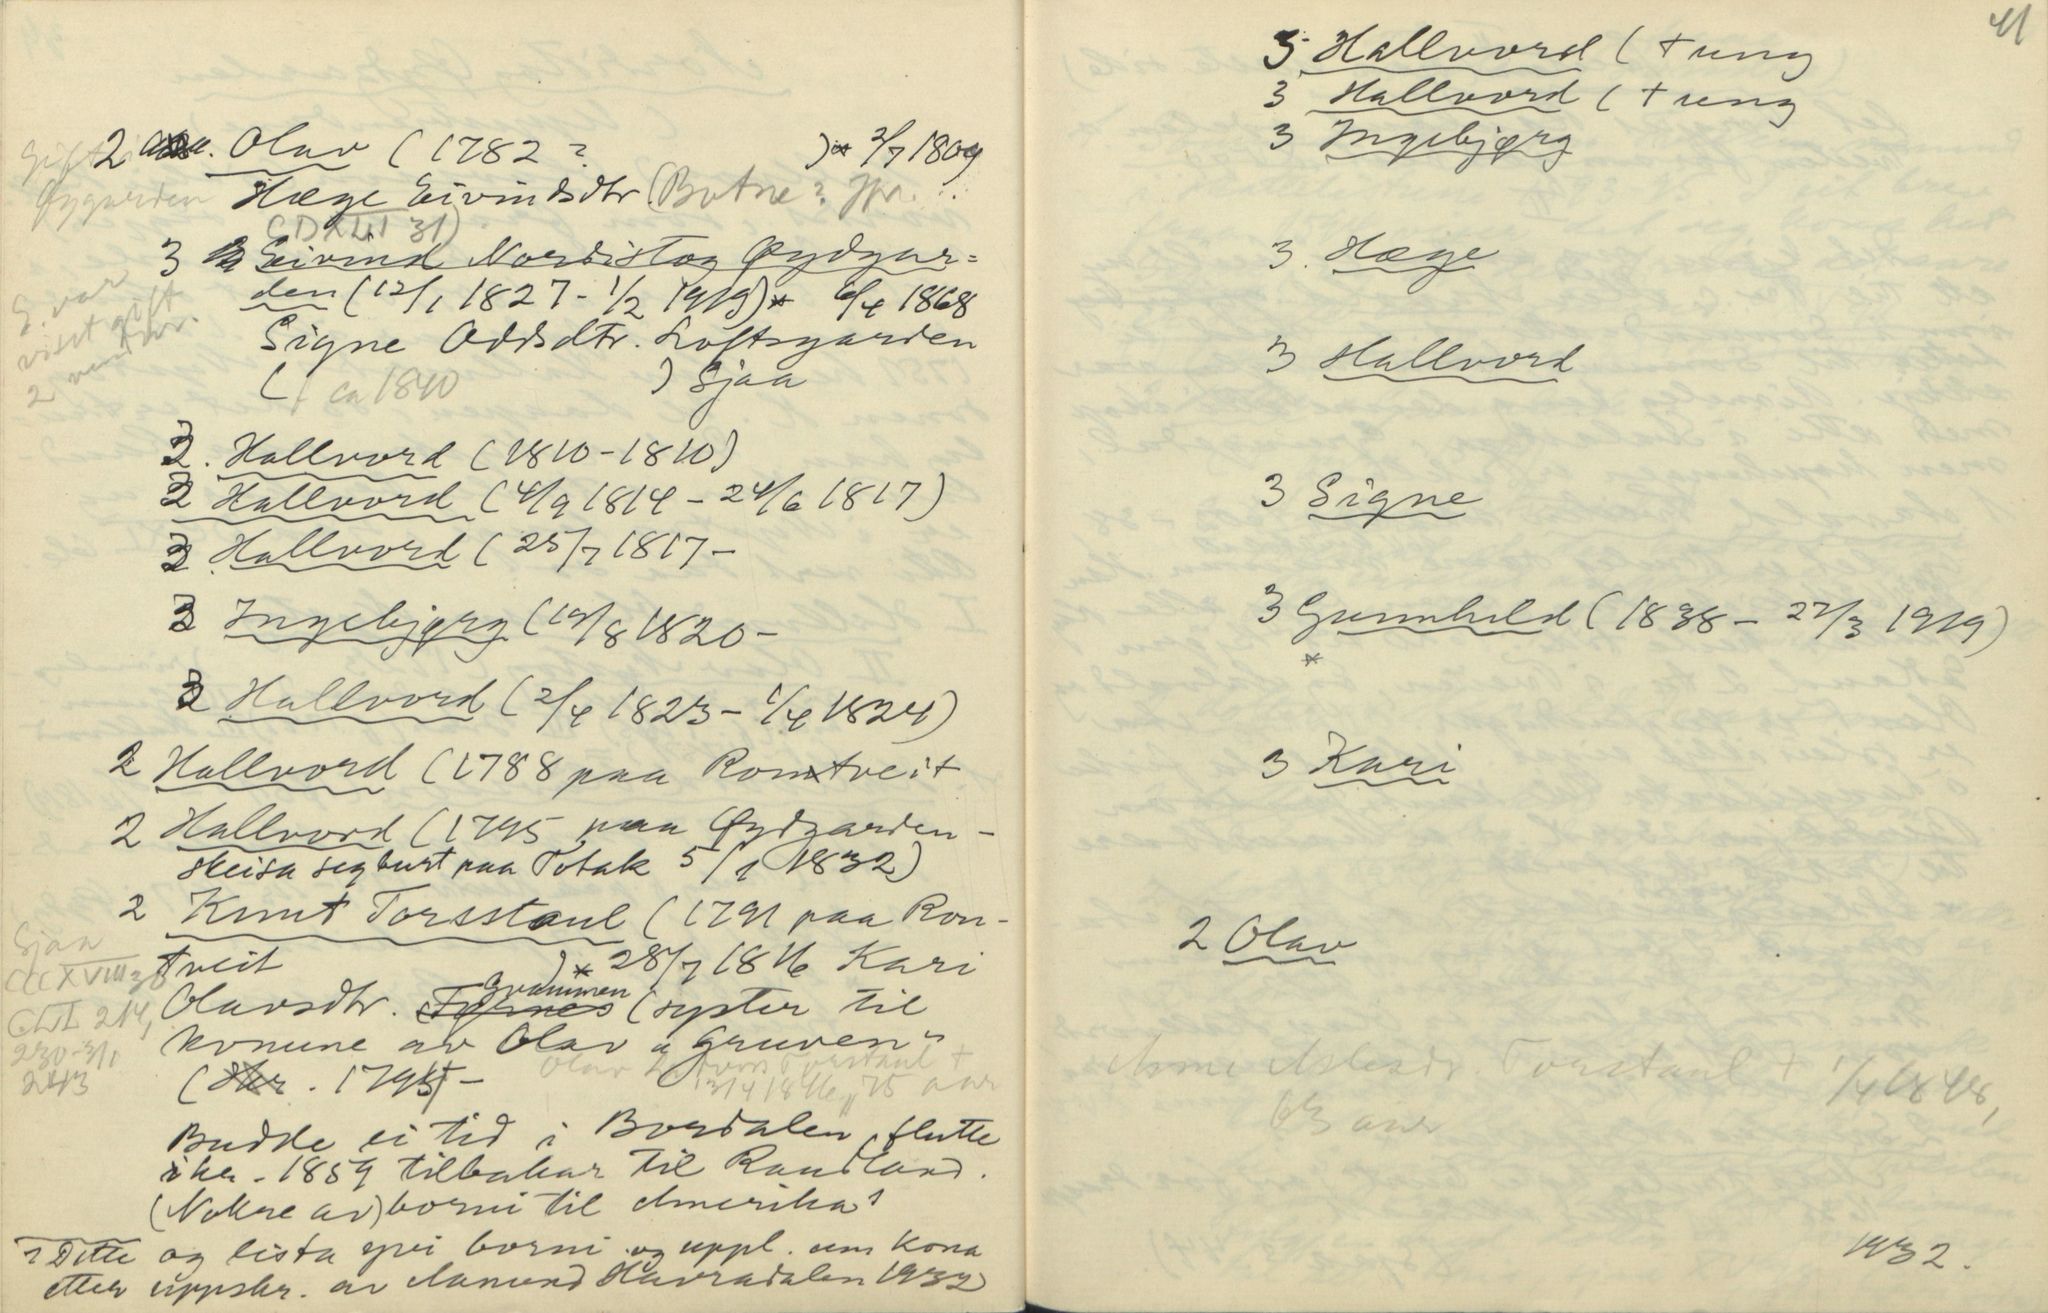 2 Olav (1782 ? )* 2/7 1809
Hæge Eivindsdtr. (Botne?
3 Eivind Nordistog Øydgar=
den (12/1 1827 - 1/2 1919)* 6/4 1868
Signe Oddsdtr. Loftsgarden
( f ca 1840 ) Sjaa
Gift i
Øygarden
E. var
visst gift
2 vend
3. Hallvord (1810-1810)
3 Hallvord (4/9 1814 - 24/6 1817)
3 Hallvord (25/7 1817 -
3 Ingebjørg (19/8 1820 -
3 Hallvord (2/4 1823 - 1/4 1824)
2 Hallvord (1788 paa Romtveit
2 Hallvord (1795 paa Øydgarden -
skeisa seg burt paa Totak 5/1 1832)
2 Knut Torsstaul (1791 paa Rom-
tveit )* 28/7 1816 Kari
Olavsdtr. Grammen (syster til
konune av Olav i Gruven"
( 1795 -
Olav Torstaul +
13/4 1846, 75 aar
Sjaa
CCCXVIII 38
214,
230-31,
243
Budde ei tid i Bordalen, flutte
ikr. 1859 tilbakar til Raudland.
(Nokre av) borni til Amerika 1
1 Dette og lista yvi borni og uppl. um kona
etter uppskr. av Aamund Havradalen 1932
41
3 Hallvord (+ ung
3 Hallvord (+ ung
3 Ingebjørg
3. Hæge
3 Hallvord
3 Signe
3 Gunnhild (1838 - 27/3 1919)
*
3 Kari
2 Olav
Torstaul + 1/4 1848,
63 aar
1932.